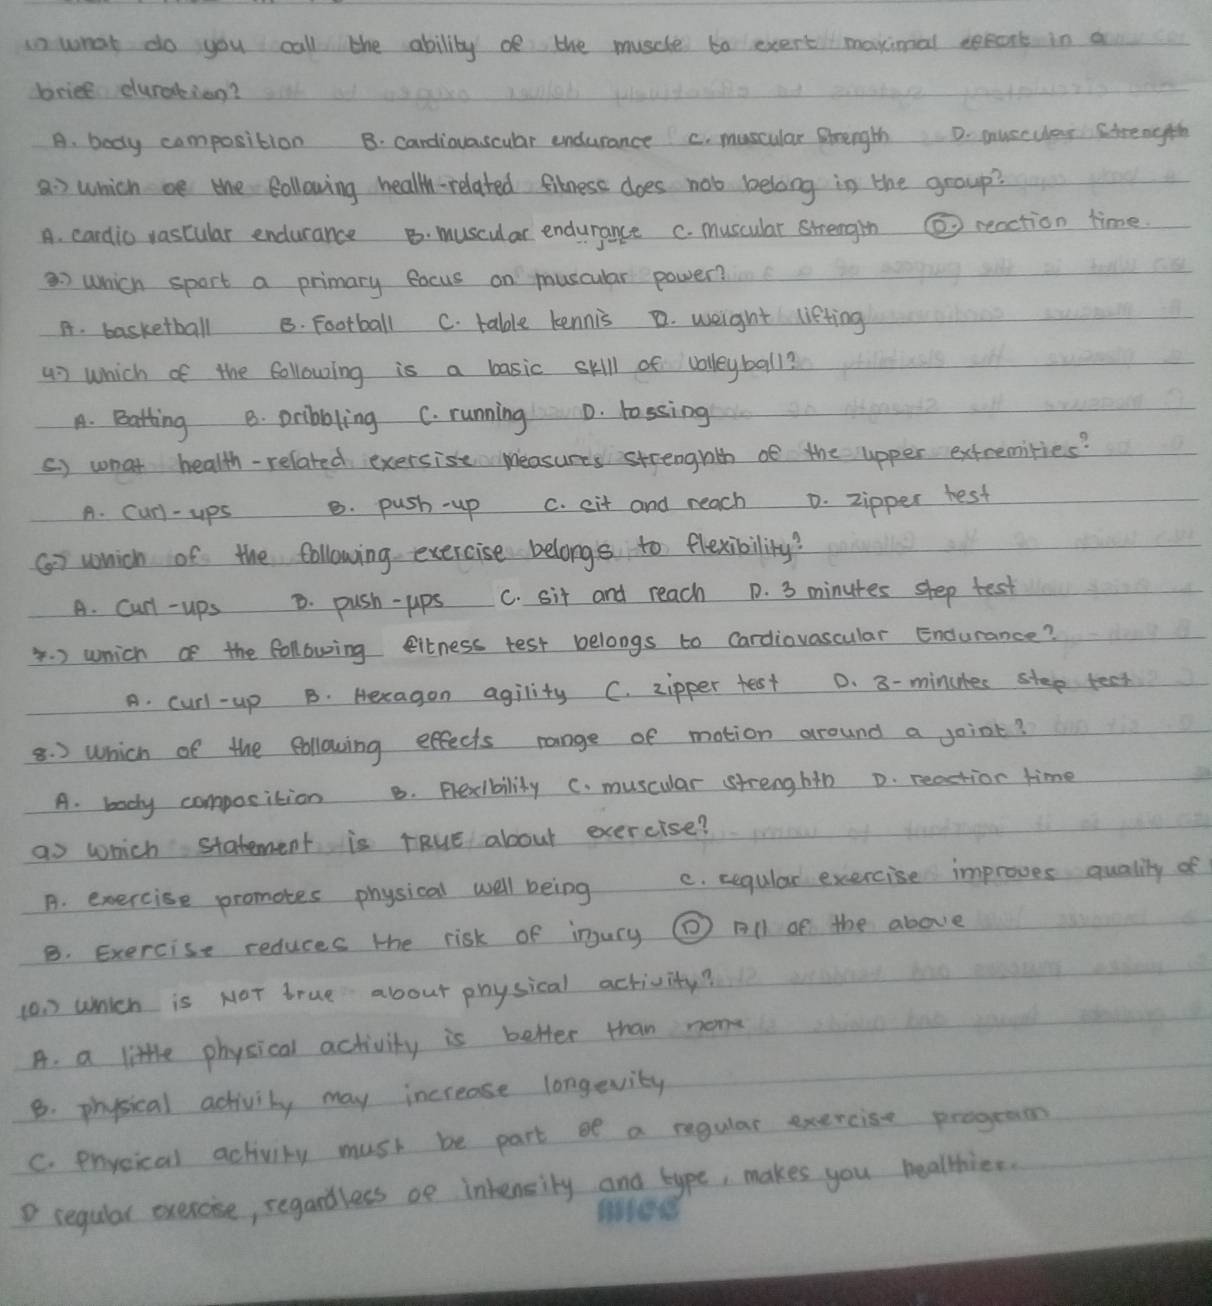 1.) what do you call the ability of the muscle to exert maximal effort in a
brief duration?
A. body composition B. cardiovascular endurance C. muscular Strength D. muscular Strength
2.) which of the following health-related fitness does not belong in the group?
A. cardio vascular endurance B. muscular endurance C. muscular Strength D. reaction time.
3.) which sport a primary focus on muscular power?
A. basketball B. Football C. table tennis D. weight lifting
4.) which of the following is a basic skill of volleyball?
A. Batting B. Dribbling C. running D. tossing
5.) what health-related exersise measures strenghth of the upper extremities?
A. Curl-ups B. push-up C. sit and reach D. zipper test
6.) which of the following exercise belongs to flexibility?
A. Curl-ups B. push-ups C. sit and reach D. 3 minutes step test
7.) which of the following fitness test belongs to Cardiovascular Endurance?
A. curl-up B. Hexagon agility C. zipper test D. 3-minutes step test
8.) which of the following effects range of motion around a joint?
A. body composition B. Flexibility C. muscular strenghth D. reaction time
9.) which statement is TRUE about exercise?
A. exercise promotes physical well being C. regular exercise improves quality of
B. Exercise reduces the risk of injury D. All of the above
10.) which is NOT true about physical activity?
A. a little physical activity is better than none
B. physical activity may increase longevity
C. Physical activity must be part of a regular exercise program
D regular exercise, regardless of intensity and type, makes you healthier.